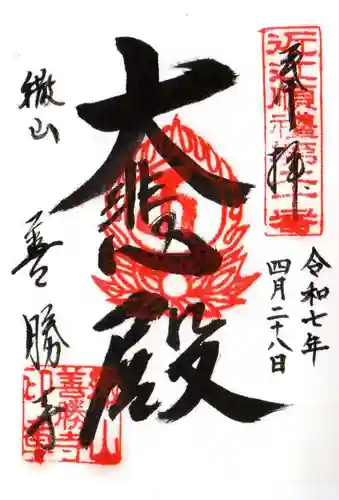 奉拝
近江順禮第
令和七年
四月二十八日
大悲殿
繖山
善勝寺
繖山
善勝寺